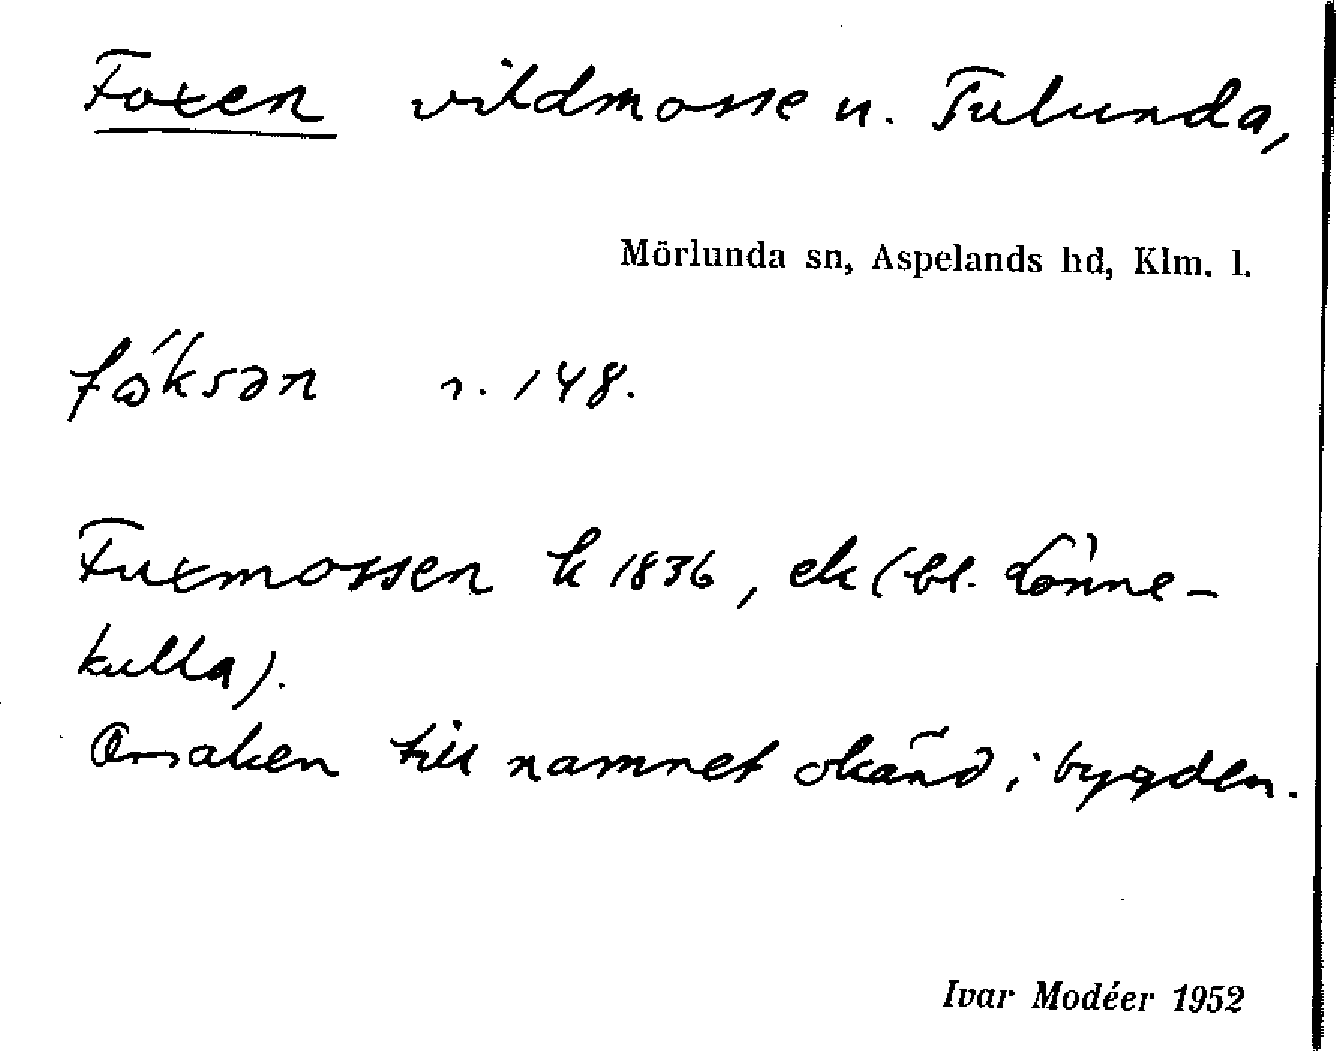 Foxen vildmosse n. Tulunda,
Mörlunda sn, Aspelands hd, Klm. l.
fóksən n. 148.
Fuxmossen k 1836, ek (bl. Lönne-
kulla).
Orsaken till namnet okänd i bygden.
Ivar Modéer 1952